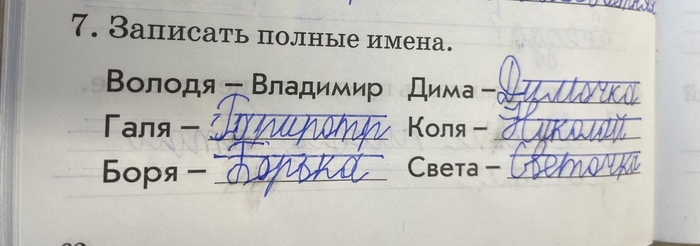 7. Записать полные имена.
Володя – Владимир Дима – Димочка
Галя – Гарипотр Коля – Николай
Боря – Борька Света – Светочка